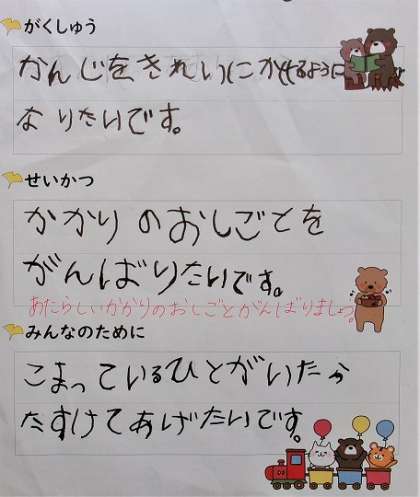 がくしゅう
かんじをきれいにかけるように
なりたいです。
せいかつ
かかりのおしごとを
がんばりたいです。
あたらしいかかりのおしごとがんばりましょう。
みんなのために
こまっているひとがいたら
たすけてあげたいです。